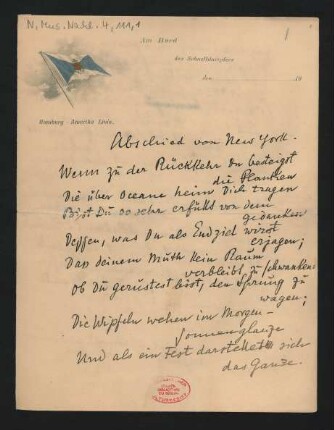 N. Mus. Nachl. 4, 111,1
1
An Bord
des Schnelldampfers
den 19
Hamburg - Amerika Linie.
Abschied von New York.
Wenn zu der Rückkehr Du besteigst
die Planken
Die über Oceane heim Dich tragen
Bist Du so sehr erfüllt von dem
Gedanken
Dessen, was Du als Endziel wirst
erjagen;
Das deinem Muth kein Raum
verbleibt, zu schwanken
Ob Du gerüstest bist, den Sprung zu
wagen;
Die Wipfeln wehen im Morgen-
sonnenglanze
Und als ein Fest darstellet sich
das Ganze.